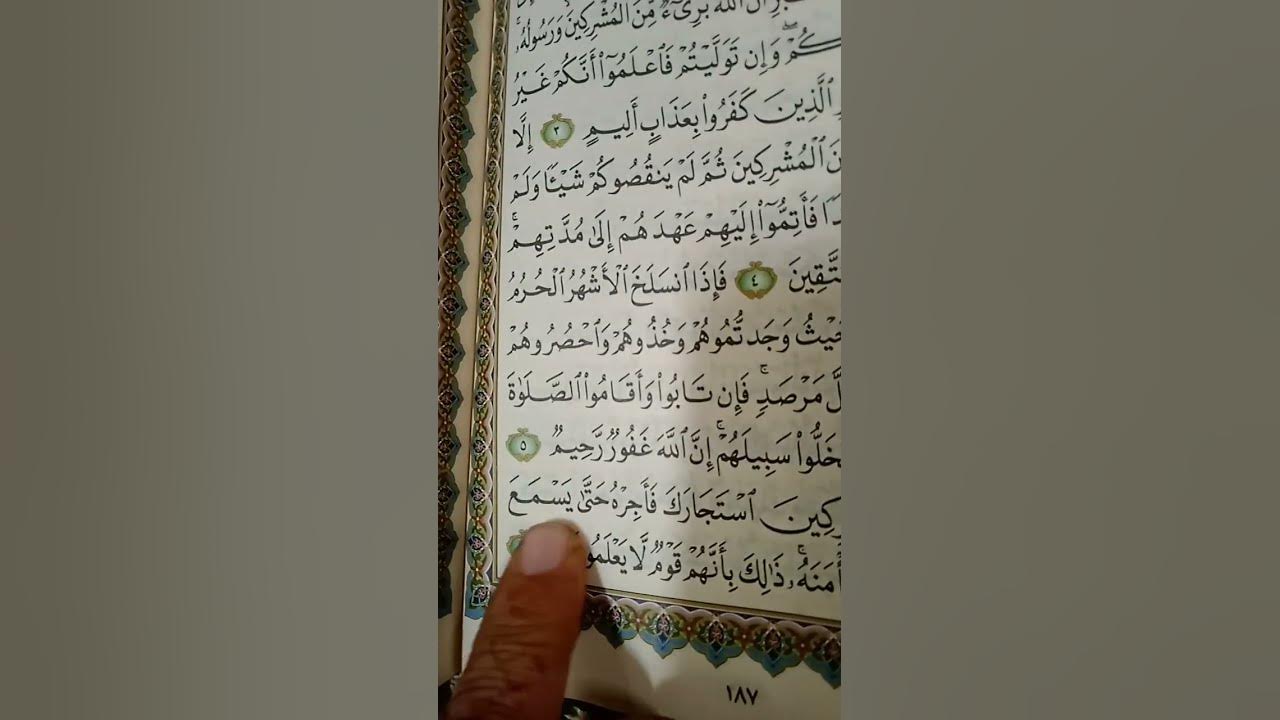 أَنَّ ٱللَّهَ بَرِىٓءٌ مِّنَ ٱلْمُشْرِكِينَ وَرَسُولُهُۥ ۚ
وَإِن تَوَلَّيْتُمْ فَٱعْلَمُوٓا۟ أَنَّكُمْ غَيْرُ
ٱلَّذِينَ كَفَرُوا۟ بِعَذَابٍ أَلِيمٍ ٣ إِلَّا
ٱلْمُشْرِكِينَ ثُمَّ لَمْ يَنقُصُوكُمْ شَيْـًٔا وَلَمْ
فَأَتِمُّوٓا۟ إِلَيْهِمْ عَهْدَهُمْ إِلَىٰ مُدَّتِهِمْ ۚ
٤ فَإِذَا ٱنسَلَخَ ٱلْأَشْهُرُ ٱلْحُرُمُ
وَجَدتُّمُوهُمْ وَخُذُوهُمْ وَٱحْصُرُوهُمْ
مَرْصَدٍ ۚ فَإِن تَابُوا۟ وَأَقَامُوا۟ ٱلصَّلَوٰةَ
سَبِيلَهُمْ ۚ إِنَّ ٱللَّهَ غَفُورٌ رَّحِيمٌ ٥
ٱسْتَجَارَكَ فَأَجِرْهُ حَتَّىٰ يَسْمَعَ
ذَٰلِكَ بِأَنَّهُمْ قَوْمٌ لَّا
١٨٧